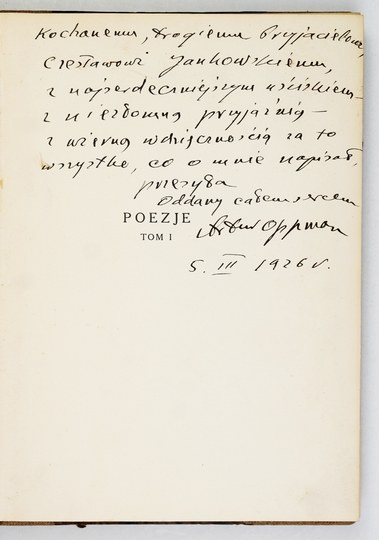 Kochanemu, drogiemu Przyjacielowi,
Czesławowi Jankowskiemu,
z najserdeczniejszym uściskiem –
z niezłomną przyjaźnią –
z wierną wdzięcznością za to
wszystko, co o mnie napisał,
przesyła
Oddany całem sercem
POEZJE
Artur Oppman
TOM I
5. III 1926 r.